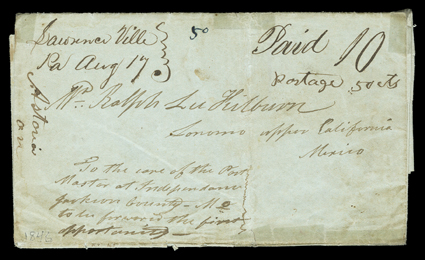 Lawrence Ville
Pa Aug 17.
50
Paid 10
Postage 50 cts
Mr. Ralph Lee Kilburn
Sonomo upper California
Mexico
Astoria
To the care of the Post
Master at Independance
Jackson County - Mo
to be forward the first
oppertunity
184